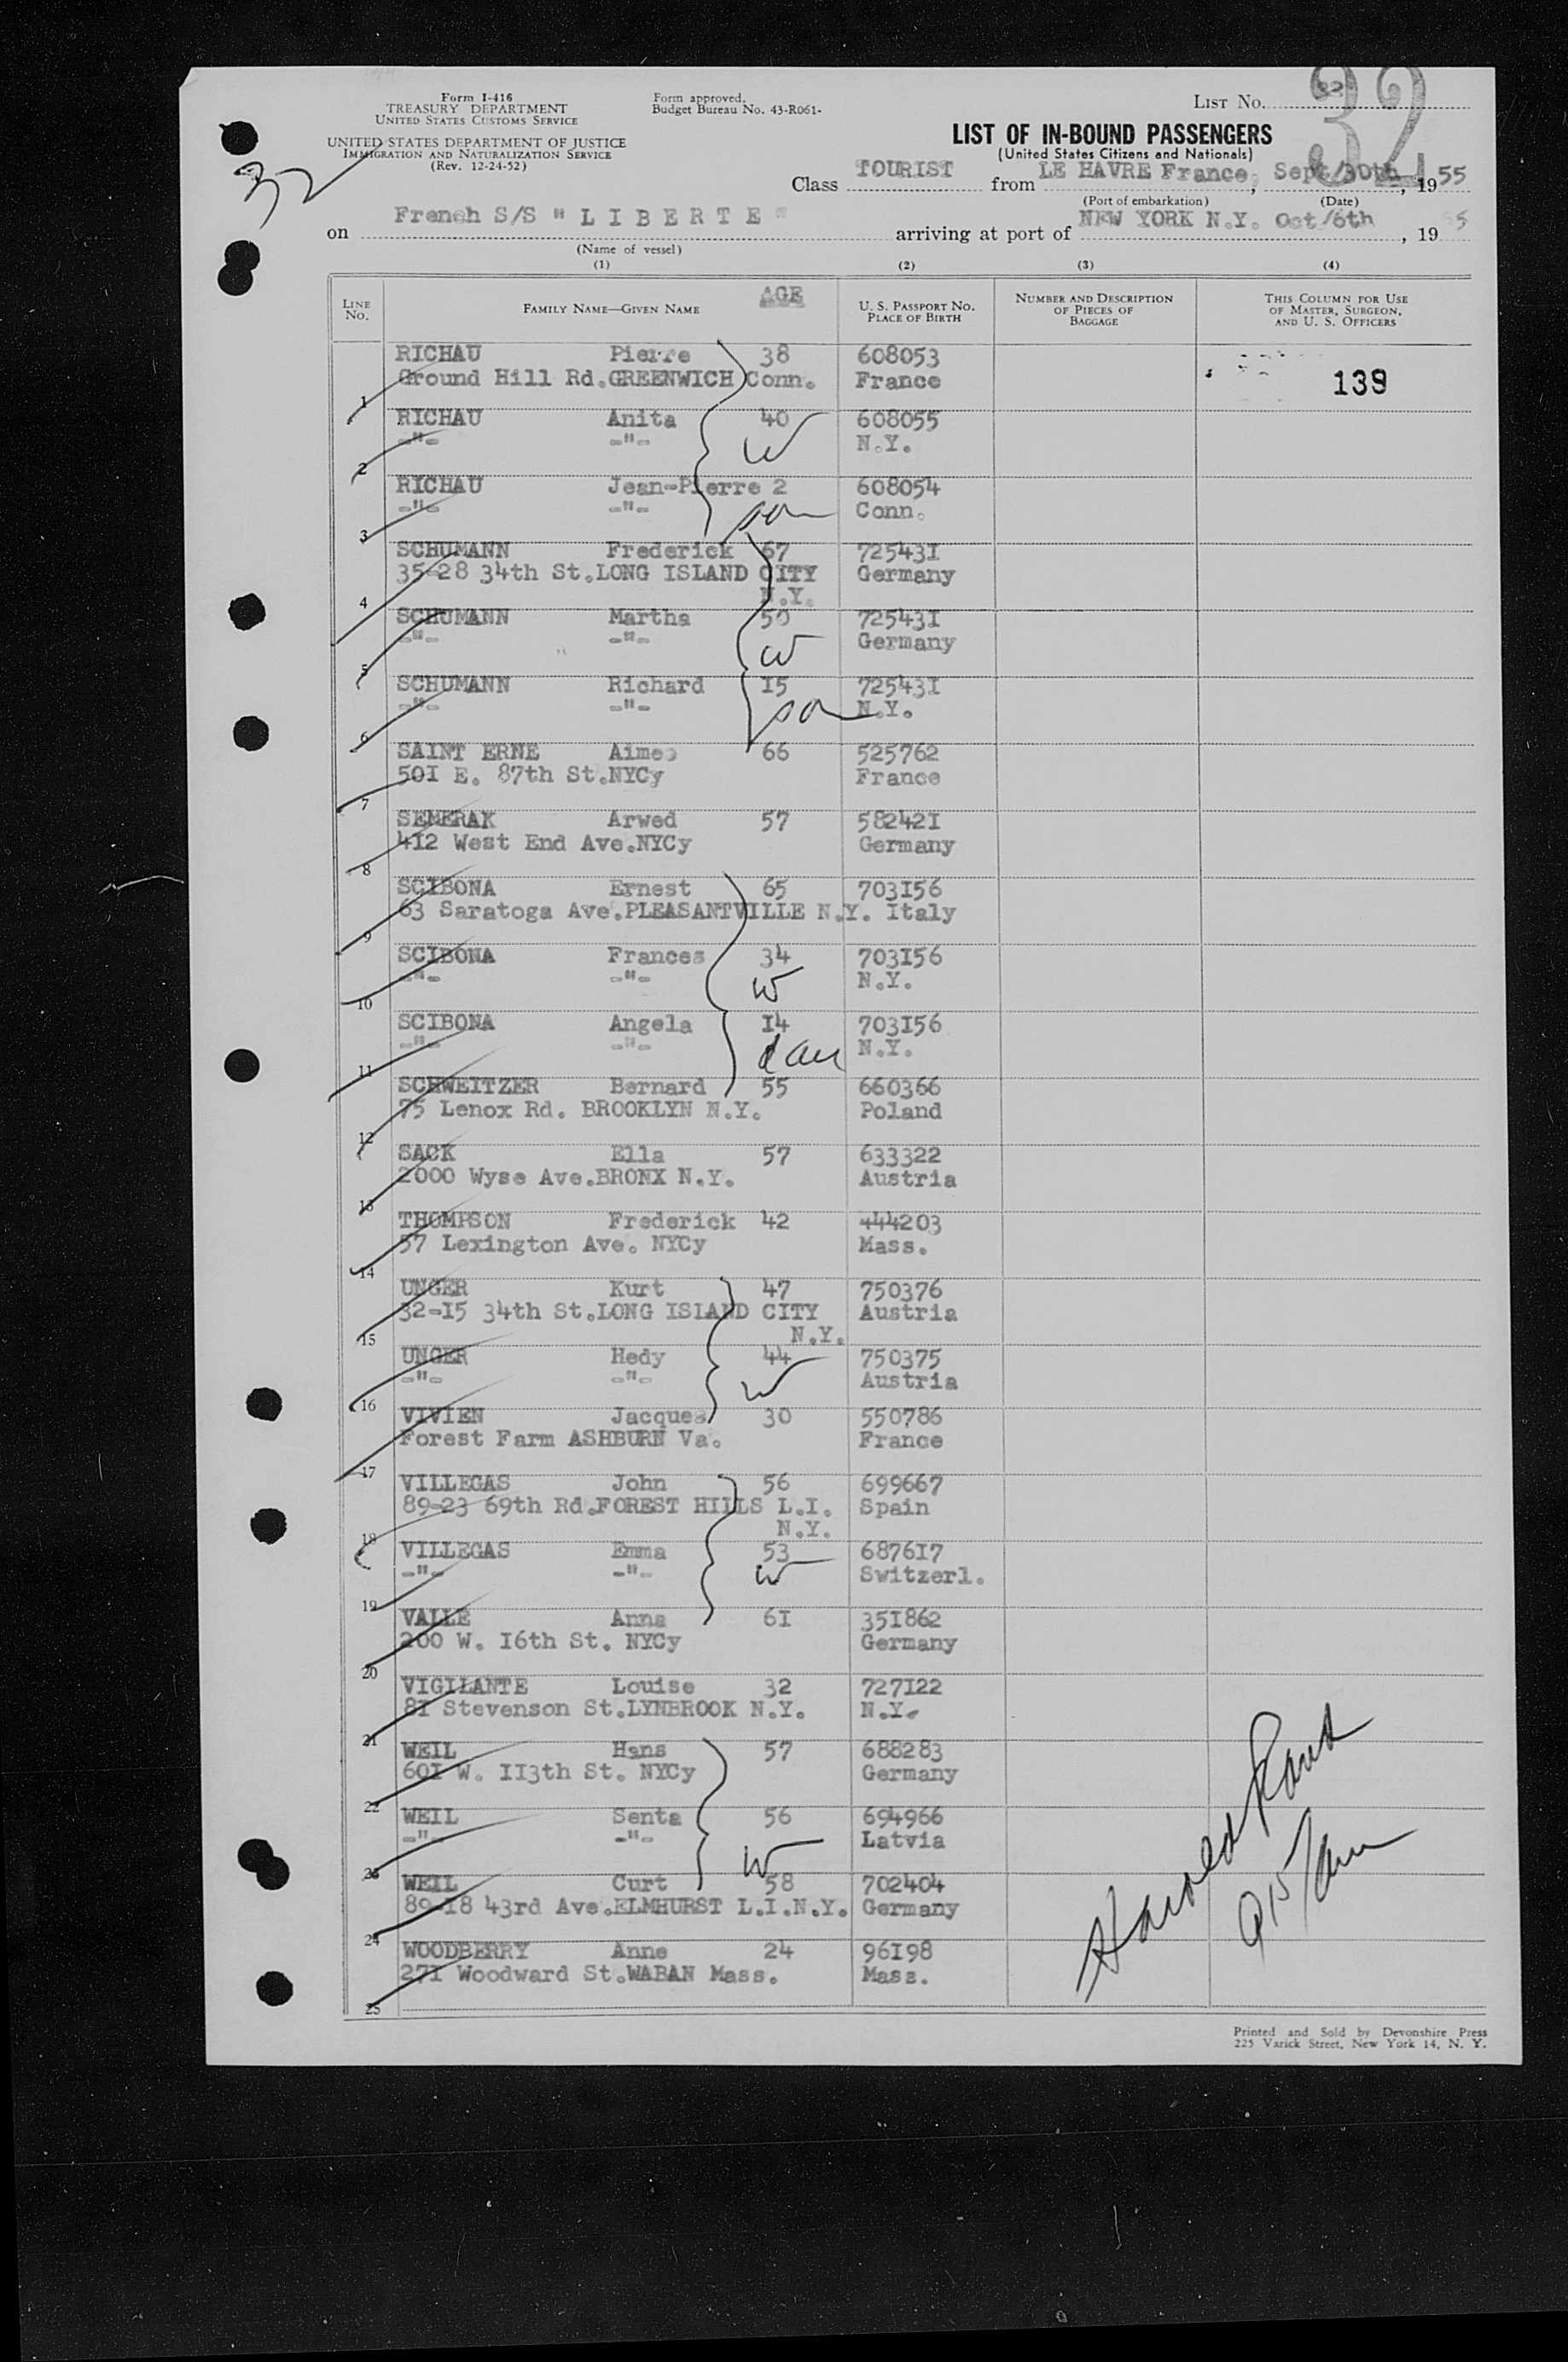 Form I-416
TREASURY DEPARTMENT
UNITED STATES CUSTOMS SERVICE
UNITED STATES DEPARTMENT OF JUSTICE
IMMIGRATION AND NATURALIZATION SERVICE
(Rev. 12-24-52)
32
Form approved.
Budget Bureau No. 43-R061-
LIST NO. 32
32
LIST OF IN-BOUND PASSENGERS
(United States Citizens and Nationals)
Class TOURIST from LE HAVRE France, Sept/30th, 1955
(Port of embarkation) (Date)
on French S/S " L I B E R T E " arriving at port of NEW YORK N.Y. Oct/6th, 1955
(Name of vessel)
(1) (2) (3) (4)
LINE NO. FAMILY NAME—GIVEN NAME AGE U. S. PASSPORT NO. PLACE OF BIRTH NUMBER AND DESCRIPTION OF PIECES OF BAGGAGE THIS COLUMN FOR USE OF MASTER, SURGEON, AND U. S. OFFICERS
RICHAU Pierre 38 608053
1 Ground Hill Rd.GREENWICH Conn. France 139
RICHAU Anita 40 608055
2 -"- -"- W N.Y.
RICHAU Jean-Pierre 2 608054
3 -"- -"- son Conn.
SCHUMANN Frederick 67 725431
4 35-28 34th St.LONG ISLAND CITY Germany
N.Y.
SCHUMANN Martha 50 725431
5 -"- -"- W Germany
SCHUMANN Richard I5 72543I
6 -"- -"- son N.Y.
SAINT ERNE Aimee 66 525762
7 50I E. 87th St.NYCy France
SEMERAK Arwed 57 58242I
8 4I2 West End Ave.NYCy Germany
SCIBONA Ernest 65 703I56
9 63 Saratoga Ave.PLEASANTVILLE N.Y. Italy
SCIBONA Frances 34 703I56
10 -"- -"- W N.Y.
SCIBONA Angela I4 703I56
11 -"- -"- dau N.Y.
SCHWEITZER Bernard 55 660366
12 75 Lenox Rd. BROOKLYN N.Y. Poland
SACK Ella 57 633322
13 2000 Wyse Ave.BRONX N.Y. Austria
THOMPSON Frederick 42 444203
14 57 Lexington Ave. NYCy Mass.
UNGER Kurt 47 750376
15 32-I5 34th St.LONG ISLAND CITY Austria
N.Y.
UNGER Hedy 44 750375
16 -"- -"- W Austria
VIVIEN Jacques 30 550786
17 Forest Farm ASHBURN Va. France
VILLEGAS John 56 699667
18 89-23 69th Rd.FOREST HILLS L.I. Spain
N.Y.
VILLEGAS Emma 53 6876I7
19 -"- -"- W Switzerl.
VALLE Anna 6I 35I862
20 200 W. I6th St. NYCy Germany
VIGILANTE Louise 32 727I22
21 8I Stevenson St.LYNBROOK N.Y. N.Y.
WEIL Hans 57 688283
22 60I W. II3th St. NYCy Germany
WEIL Senta 56 694966
23 -"- -"- W Latvia
WEIL Curt 58 702404
24 89-I8 43rd Ave.ELMHURST L.I.N.Y. Germany
WOODBERRY Anne 24 96I98
25 27I Woodward St.WABAN Mass. Mass.
Harold
Printed and Sold by Devonshire Press
225 Varick Street, New York 14, N. Y.